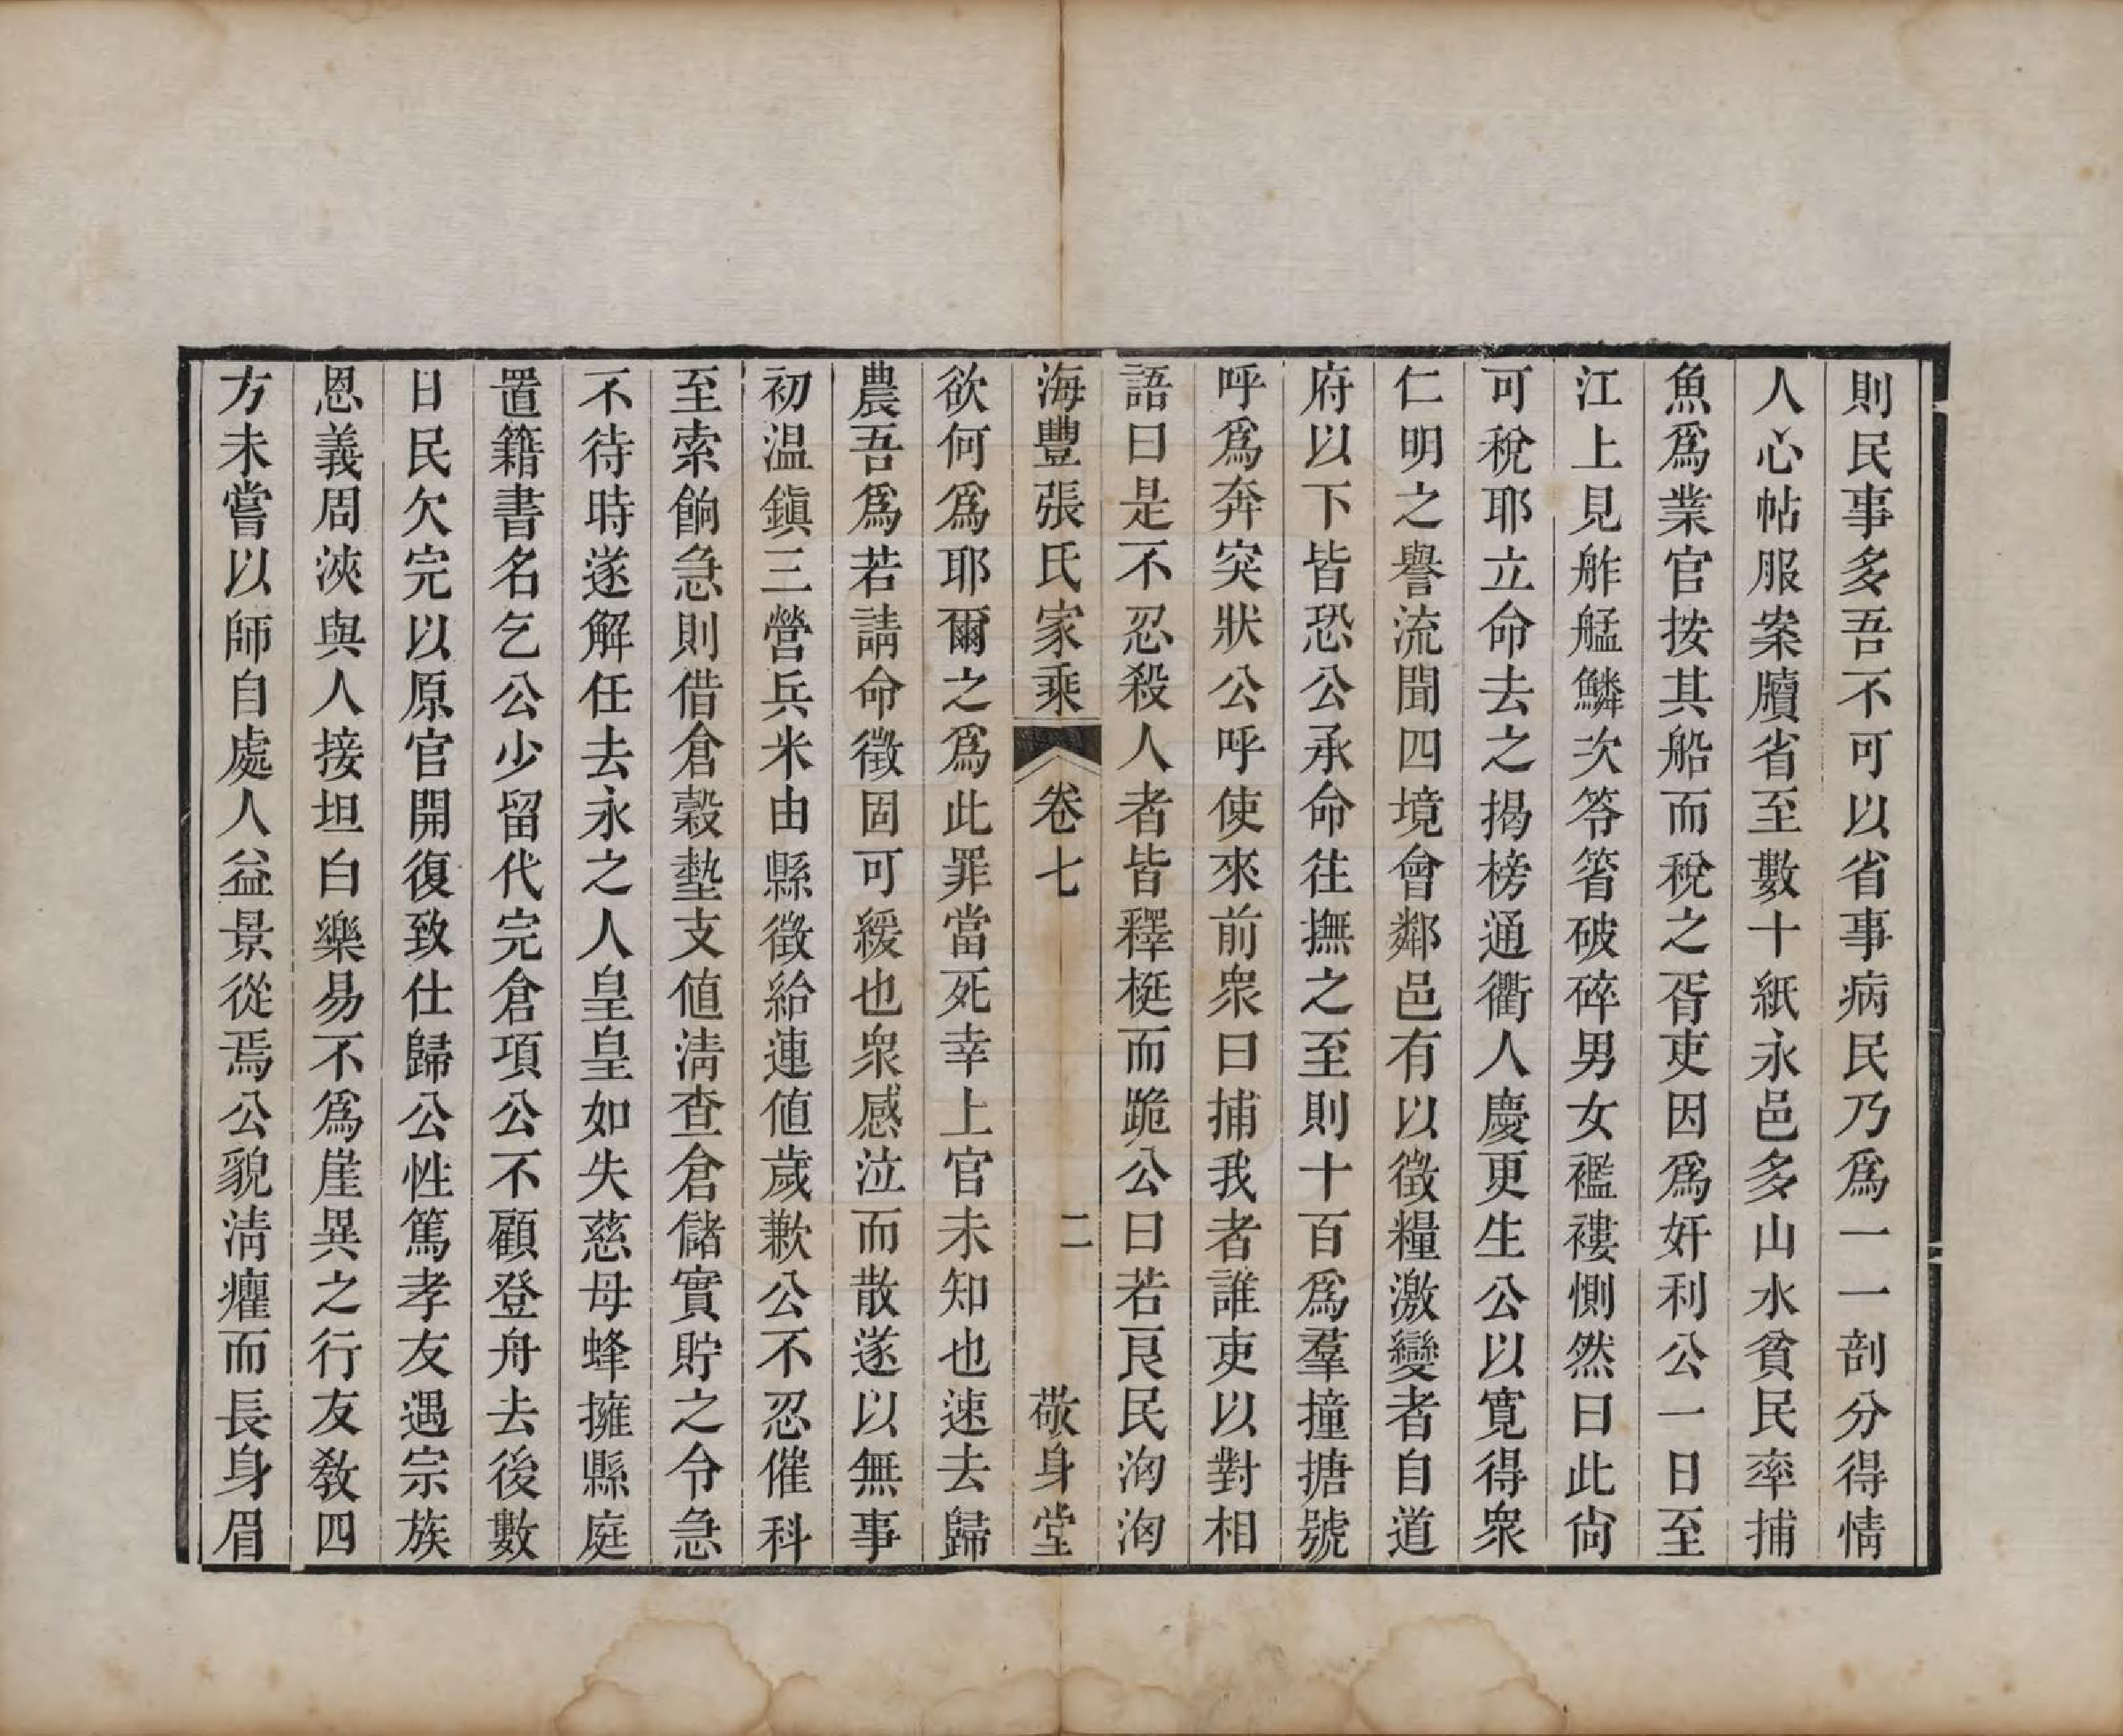 則民事多吾不可以省事病民乃爲一一剖分得情
人心帖服案牘省至數十紙永邑多山水貧民率捕
魚爲業官按其船而稅之胥吏因爲奸利公一日至
江上見舴艋鱗次笭箵破碎男女襤褸惻然曰此尙
可稅耶立命去之揭榜通衢人慶更生公以寬得衆
仁明之譽流聞四境會鄰邑有以徵糧激變者自道
府以下皆恐公承命往撫之至則十百爲羣撞搪號
呼爲奔突狀公呼使來前衆曰捕我者誰吏以對相
語曰是不忍殺人者皆釋梃而跪公曰若良民洶洶
海豐張氏家乘 卷七 二 敬身堂
欲何爲耶爾之爲此罪當死幸上官未知也速去歸
農吾爲若請命徵固可緩也衆感泣而散遂以無事
初温鎭三營兵米由縣徵給連値歲歉公不忍催科
至索餉急則借倉穀墊支値淸查倉儲實貯之令急
不待時遂解任去永之人皇皇如失慈母蜂擁縣庭
置籍書名乞公少留代完倉項公不顧登舟去後數
日民欠完以原官開復致仕歸公性篤孝友遇宗族
恩義周浹與人接坦白樂易不爲崖異之行友敎四
方未嘗以師自處人益景從焉公貌淸癯而長身眉